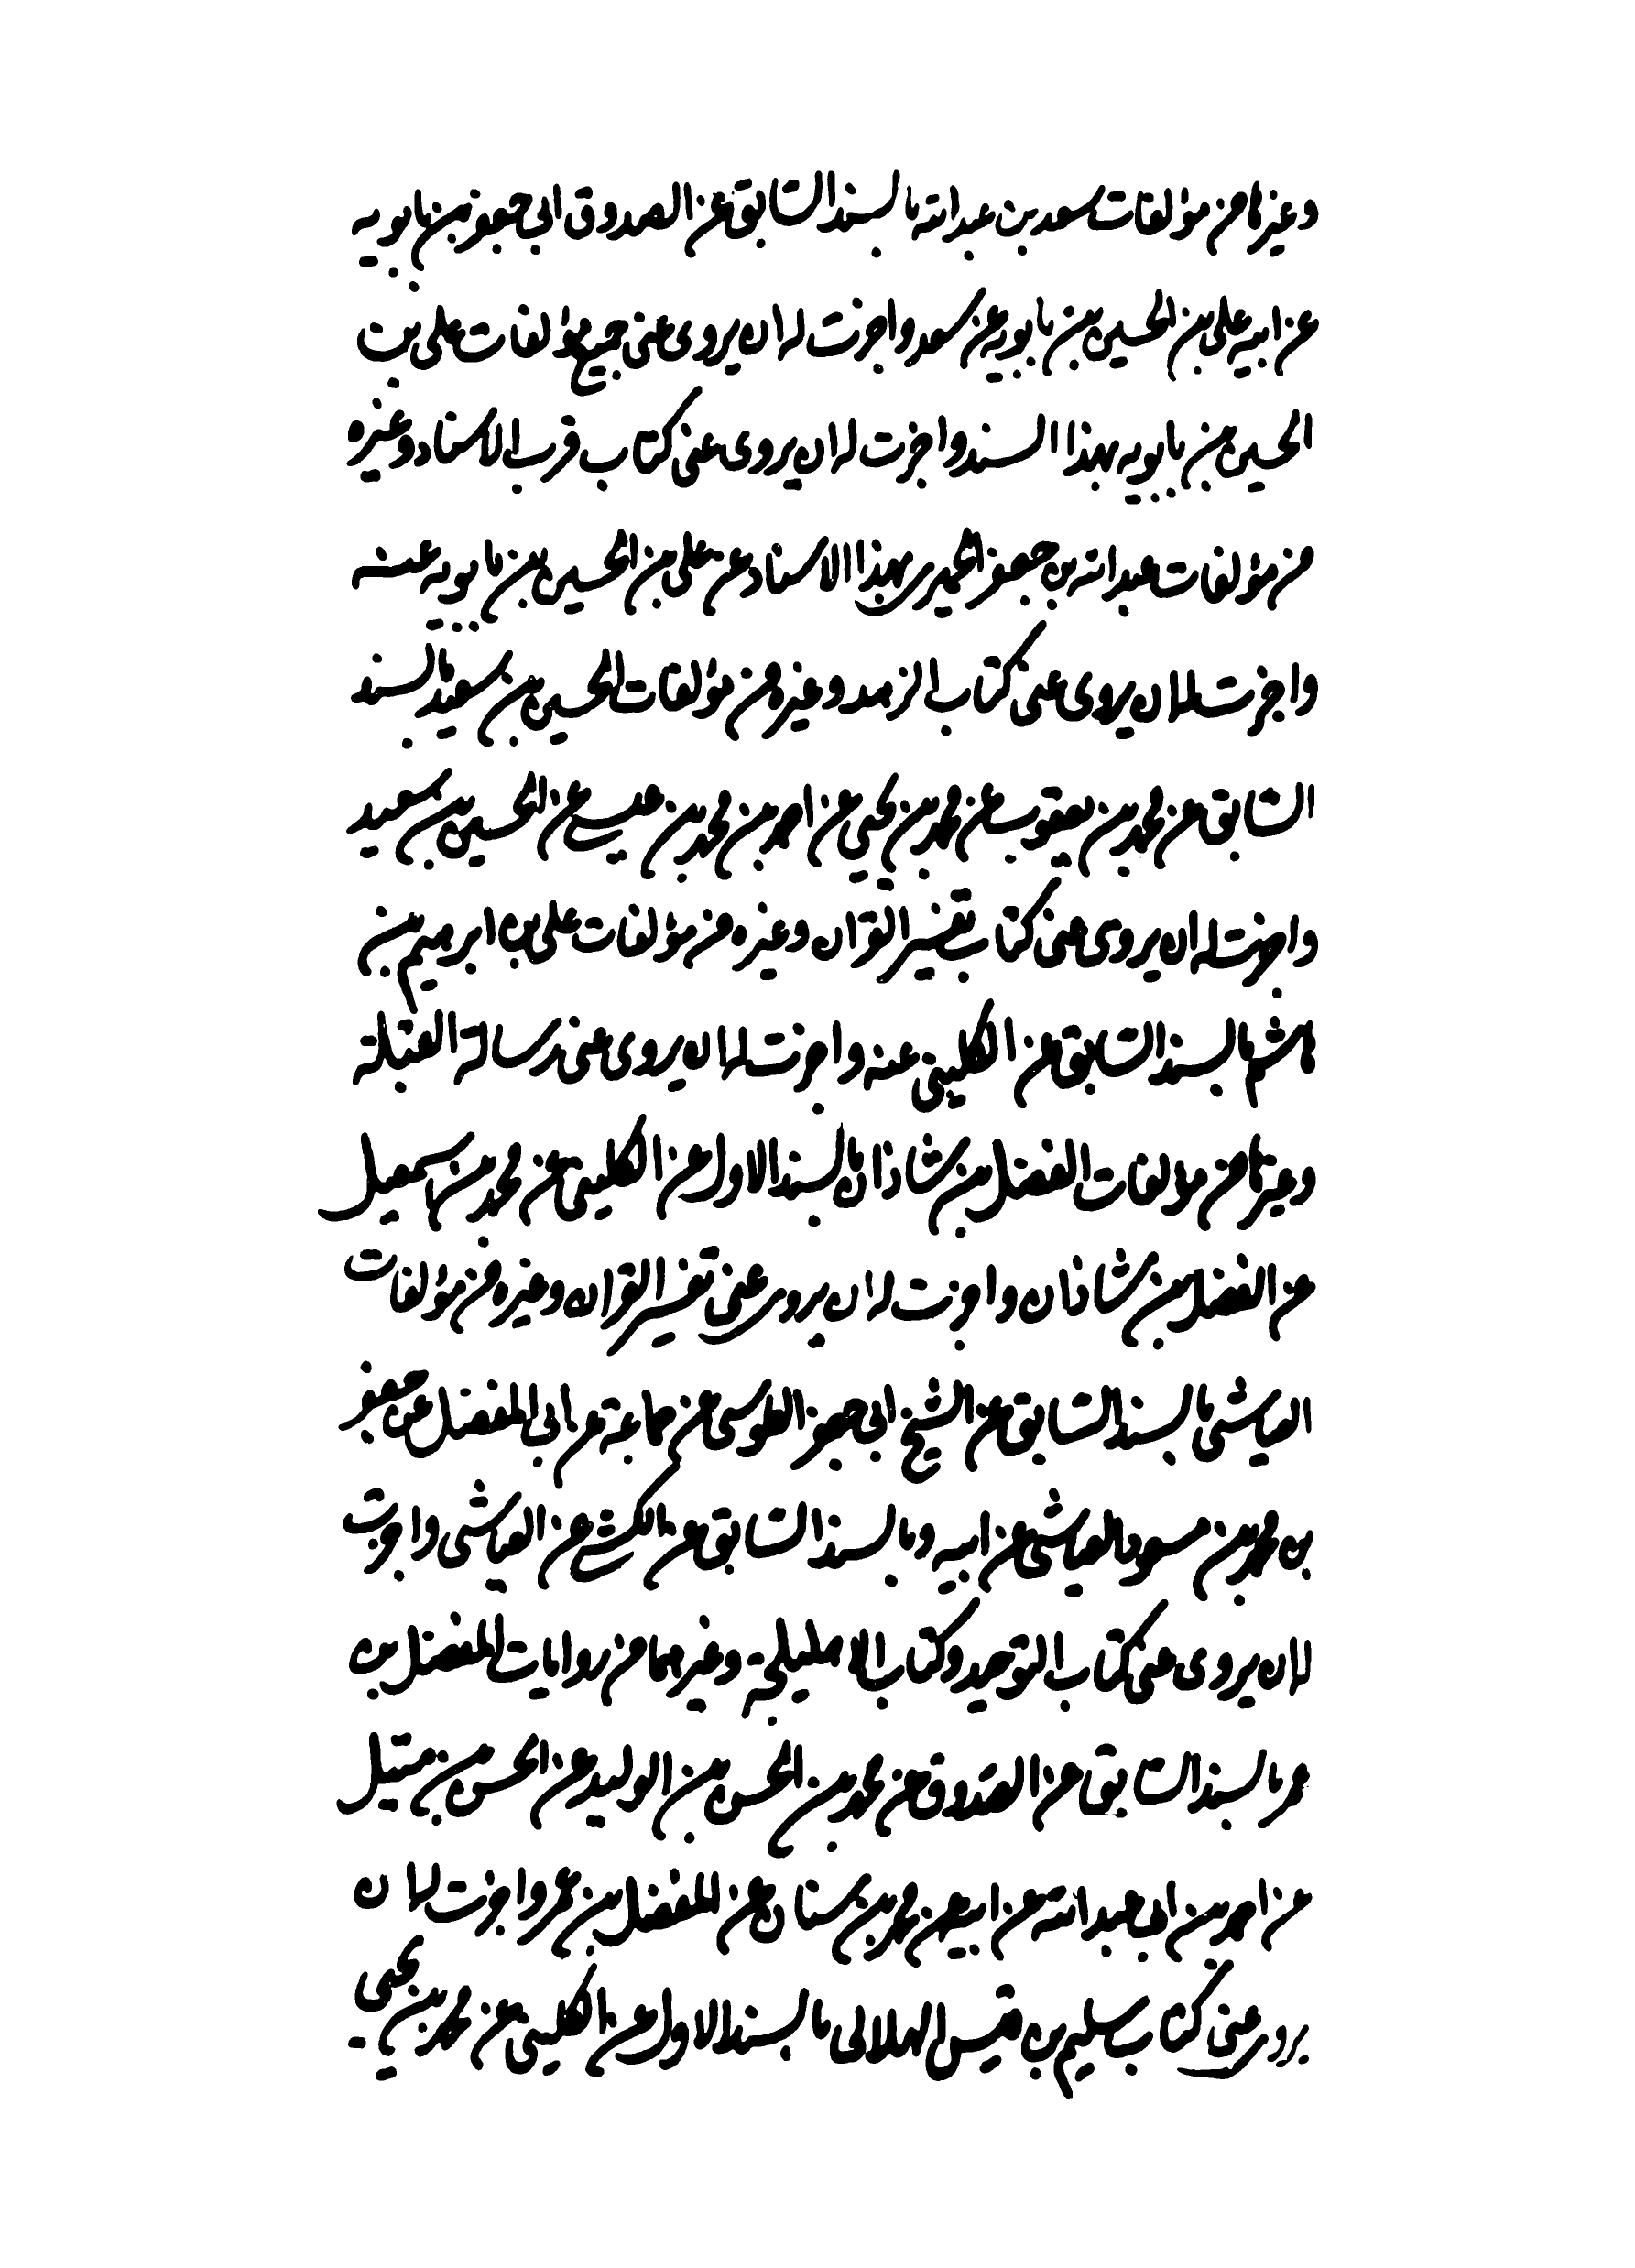 وغيرها من مؤلفات سعد بن عبد الله بالسند السابق عن الصدوق ابي جعفر بن بابويه
عن ابيه علي بن الحسين بن بابويه عن سعد واجزت له ان يروى عنى جميع مؤلفات على بن
الحسين بن بابويه بهذا السند واجزت له ان يروى عنى كتاب قرب الاسناد وغيره
من مؤلفات عبد الله بن جعفر الحميرى بهذا الاسناد عن على بن الحسين بن بابويه عنه
واجزت له ان يروى عنى كتاب الزهد وغيره من مؤلفات الحسين بن سعيد بالسند
السابق عن محمد بن يعقوب عن محمد بن يحيى عن احمد بن محمد بن عيسى عن الحسين بن سعيد
واجزت له ان يروى عنى كتاب تفسير القران وغيره من مؤلفات على بن ابرهيم بن
هاشم بالسند السابق عن الكليني عنه واجزت له ان يروى عنى رسالة القبلة
وغيرها من مؤلفات الفضل بن شاذان بالسند الاول عن الكليني عن محمد بن اسمعيل
عن الفضل بن شاذان واجزت له ان يروى عنى تفسير القران وغيره من مؤلفات
العياشى بالسند السابق عن الشيخ ابى جعفر الطوسى عن جماعة عن ابى المفضل عن جعفر
بن محمد بن مسعود العياشى عن ابيه وبالسند السابق عن الكشى عن العياشى واجزت
له ان يروى عنى كتاب التوحيد وكتاب الاهليلجة وغيرهما من روايات المفضل بن
عمر بالسند السابق عن الصدوق عن محمد بن الحسن بن الوليد عن الحسن بن متيل
عن احمد بن ابى عبد الله عن ابيه عن محمد بن سنان عن المفضل بن عمر واجزت له ان
يروى عنى كتاب سليم بن قيس الهلالى بالسند الاول عن الكلينى عن محمد بن يحيى